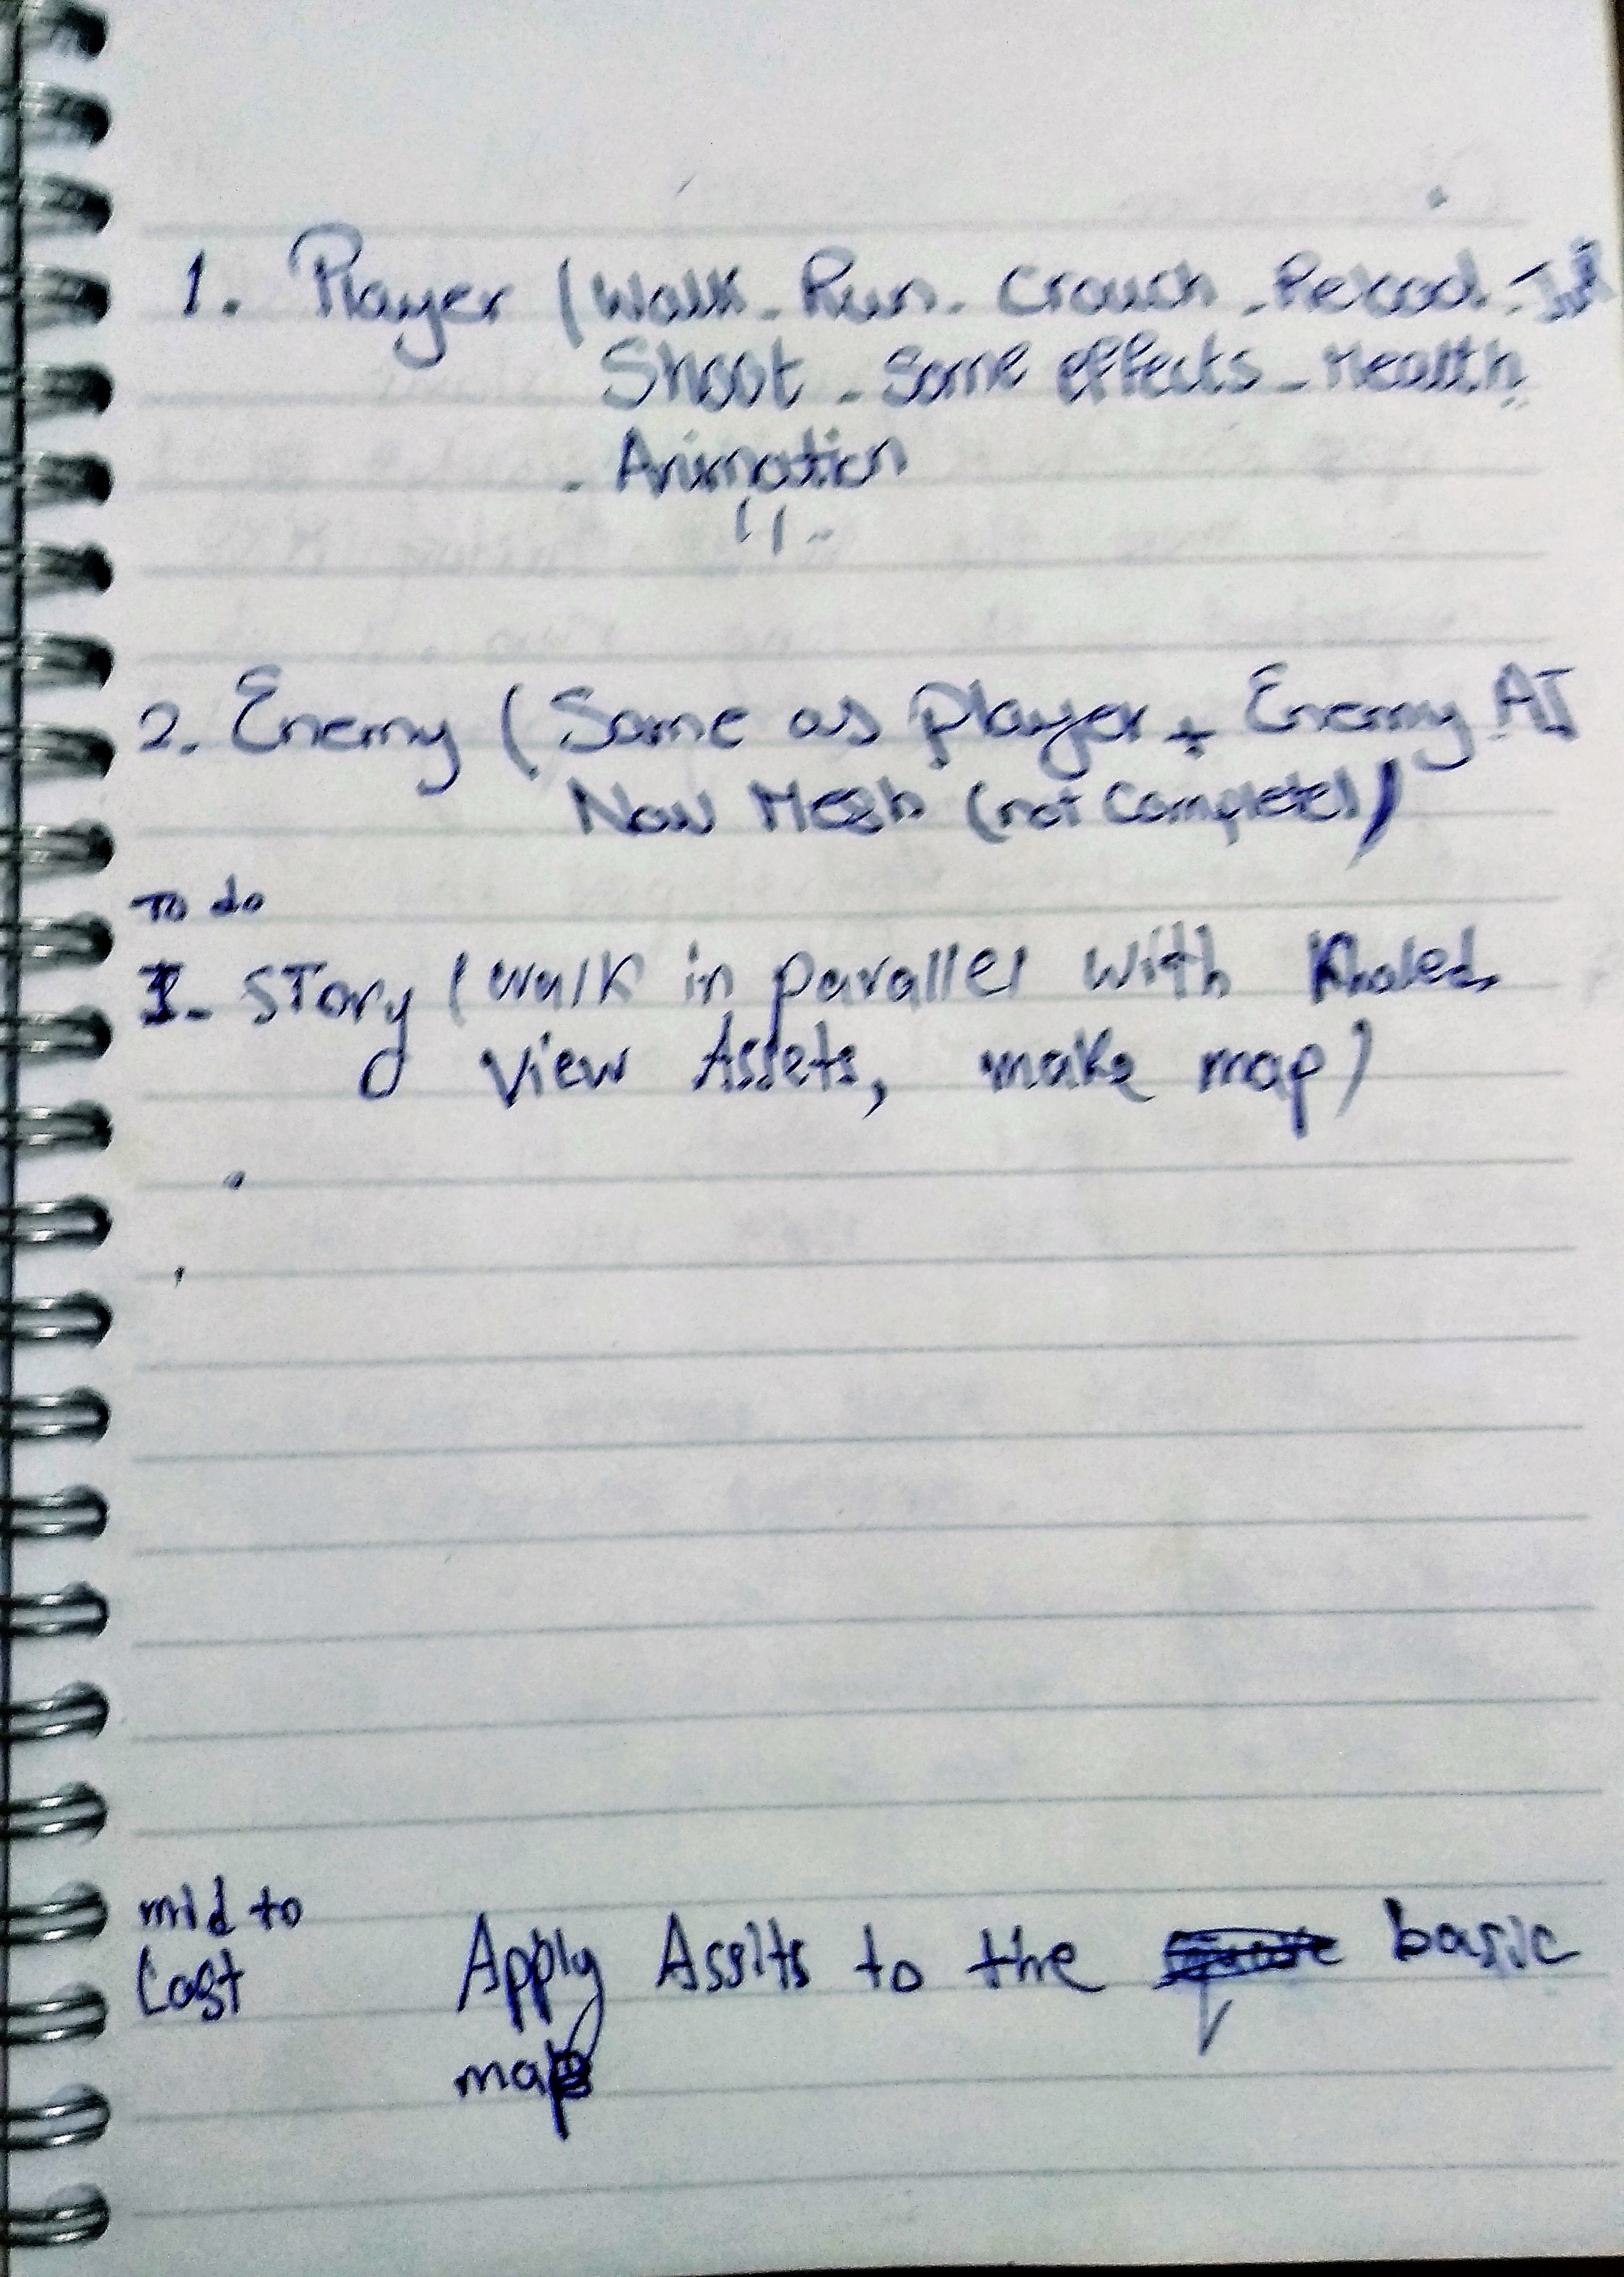 1. Player (Walk - Run - Crouch - Reload -
Shoot - Some effects - Health
- Animation
2. Enemy (Same as player + Enemy AI
Nav Mesh (not Completed)
To do
1- STory (walk in parallel with Khaled
View Assets, make map)
mid to
Last
Apply Assits to the basic
map